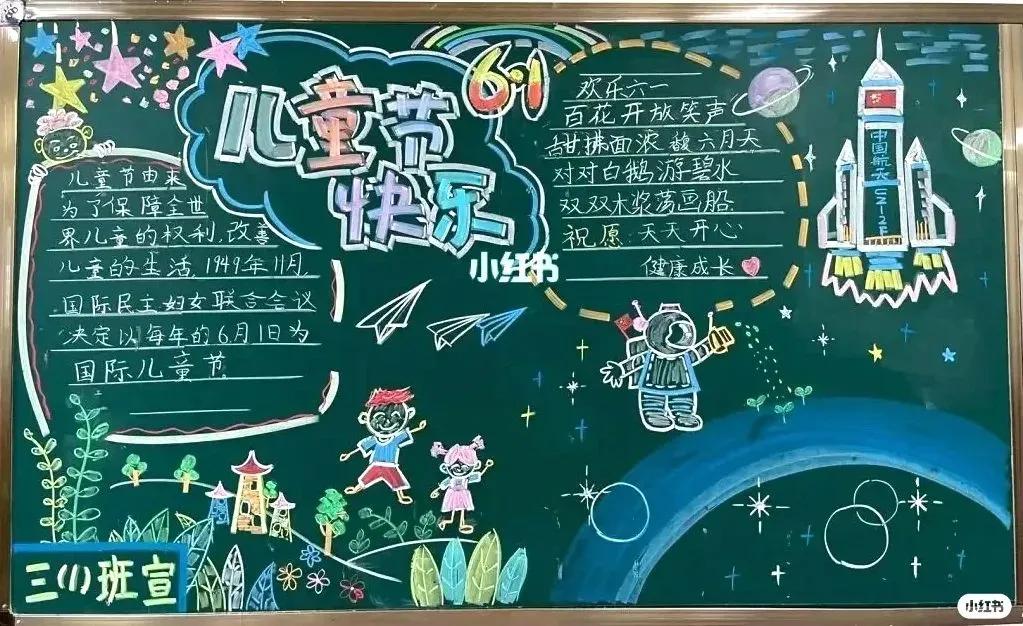 儿童节
快乐
6·1
儿童节由来
为了保障全世
界儿童的权利,改善
儿童的生活,1949年11月,
国际民主妇女联合会议
决定以每年的6月1日为
国际儿童节。
欢乐六一
百花开放笑声
甜拂面浓馥六月天
对对白鹅游碧水
双双木桨荡画船
祝愿:天天开心
健康成长
中国航天
三(1)班宣
小红书
小红书